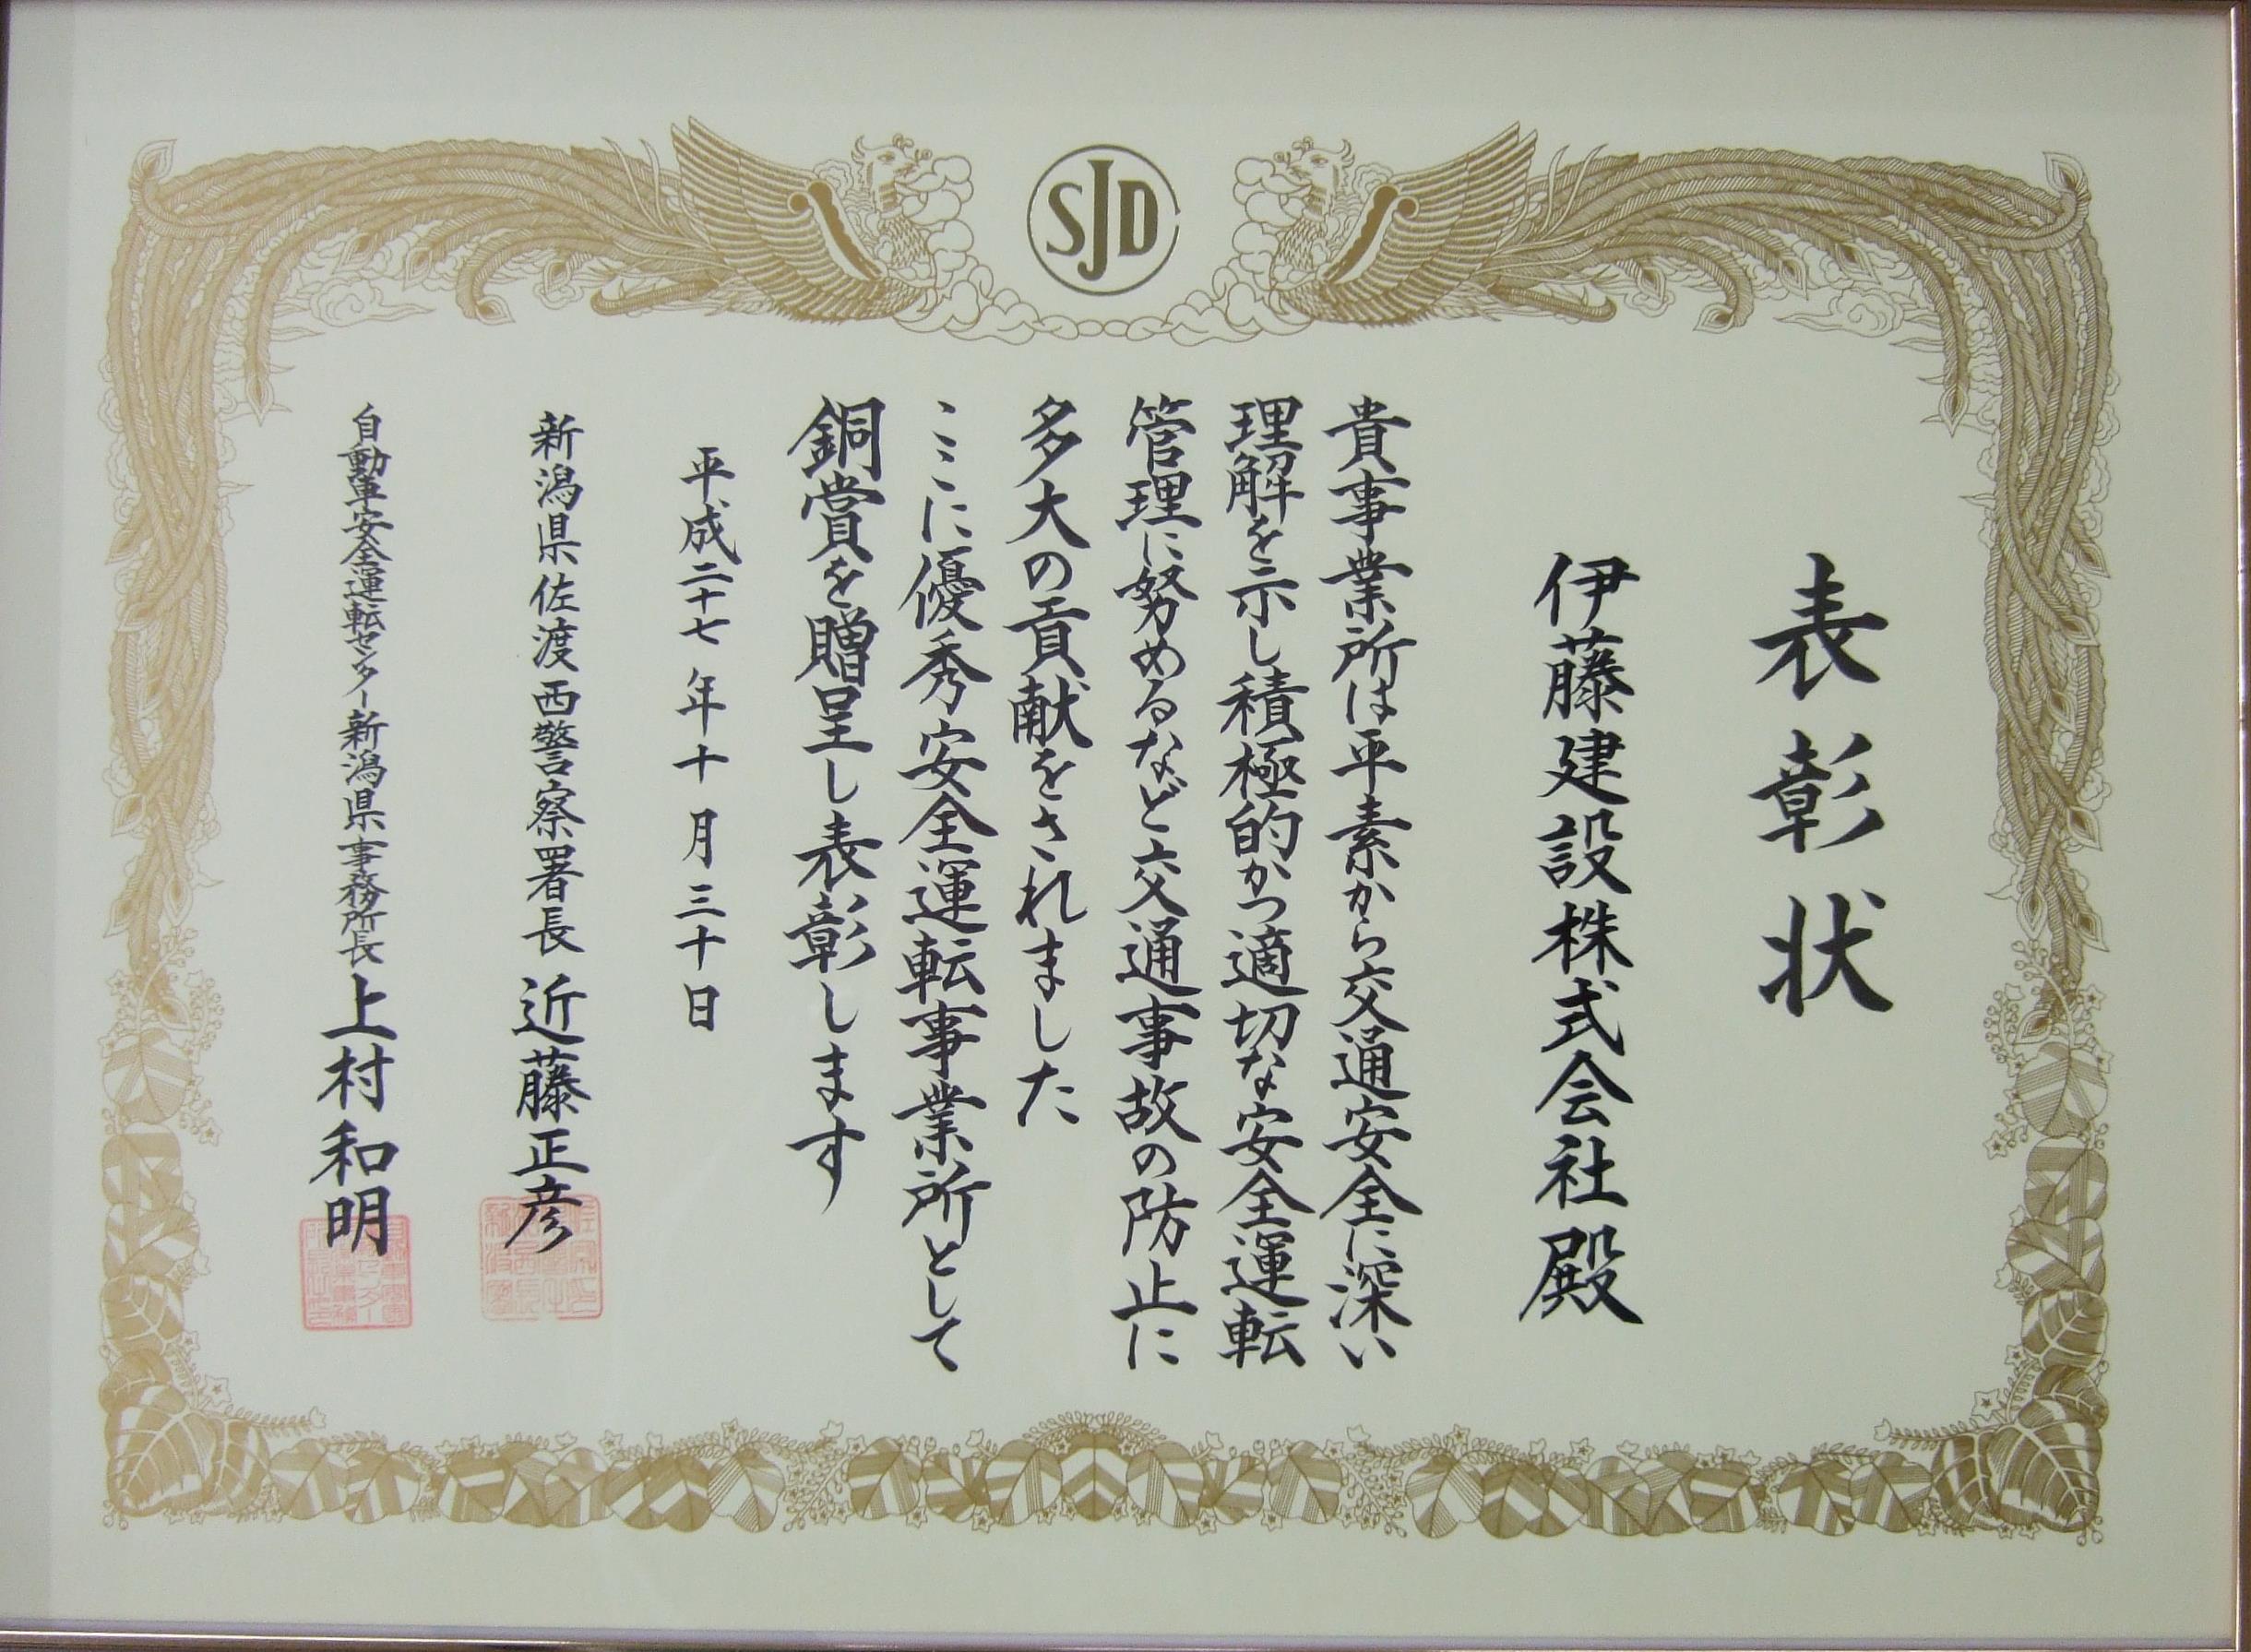 SJD
表彰状
伊藤建設株式会社殿
貴事業所は平素から交通安全に深い
理解を示し積極的かつ適切な安全運転
管理に努めるなど交通事故の防止に
多大の貢献をされました
ここに優秀安全運転事業所として
銅賞を贈呈し表彰します
平成二十七年十月三十日
新潟県佐渡西警察署長 近藤正彦
自動車安全運転センター新潟県事務所長 上村和明